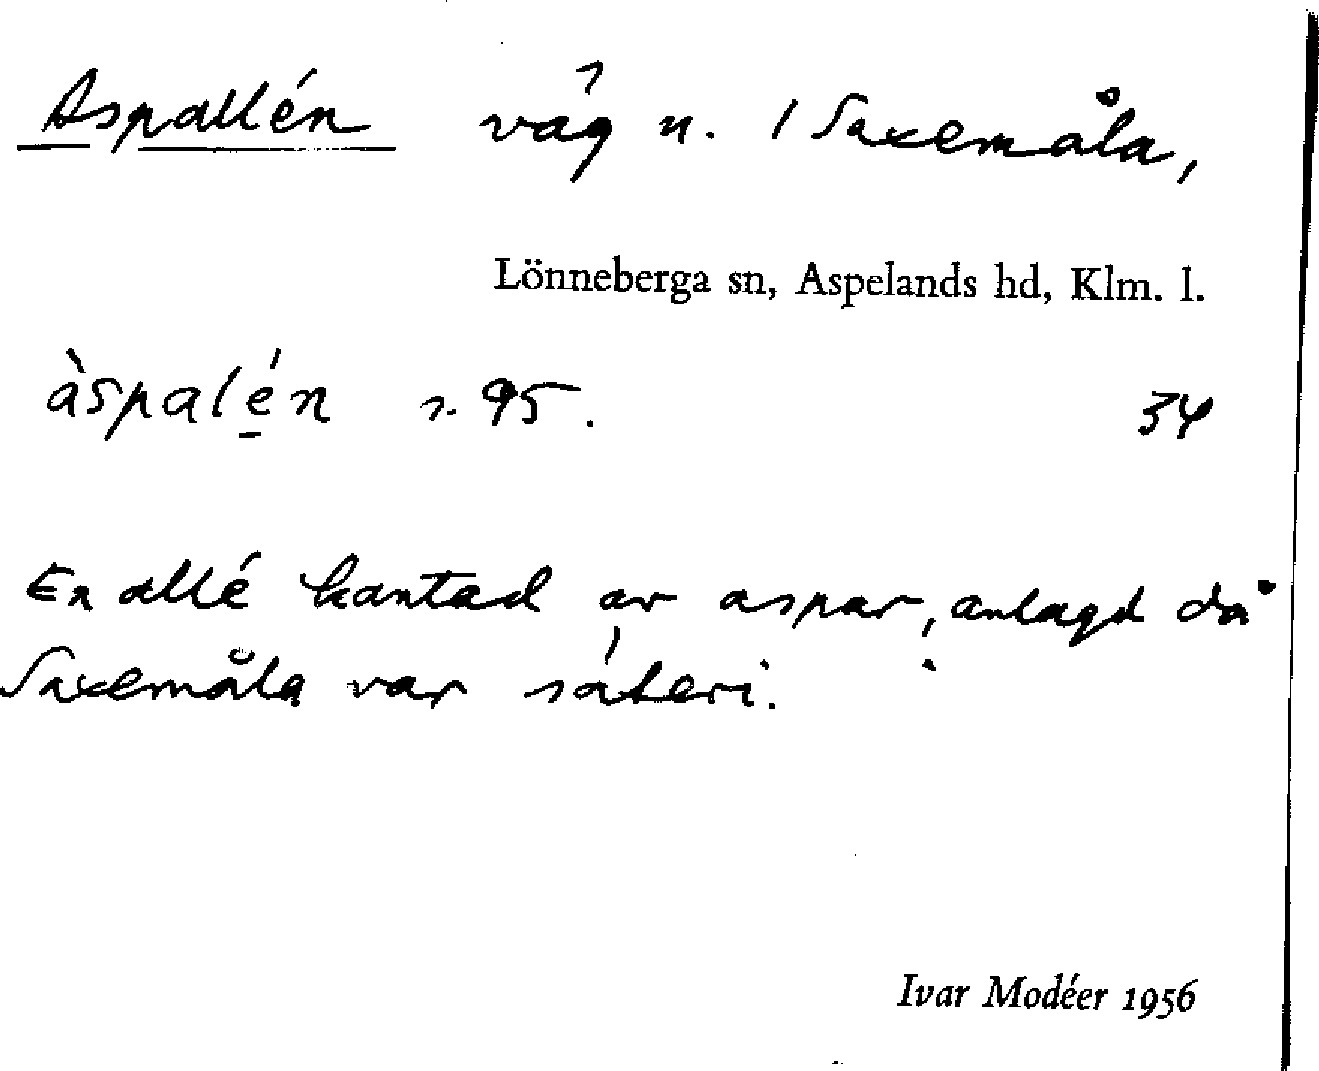 Aspallén väg n. / Saxemåla,
Lönneberga sn, Aspelands hd, Klm. l.
àspalé̱n s. 95. 34
En allé kantad av aspar, anlagd då
Saxemåla var säteri.
Ivar Modéer 1956